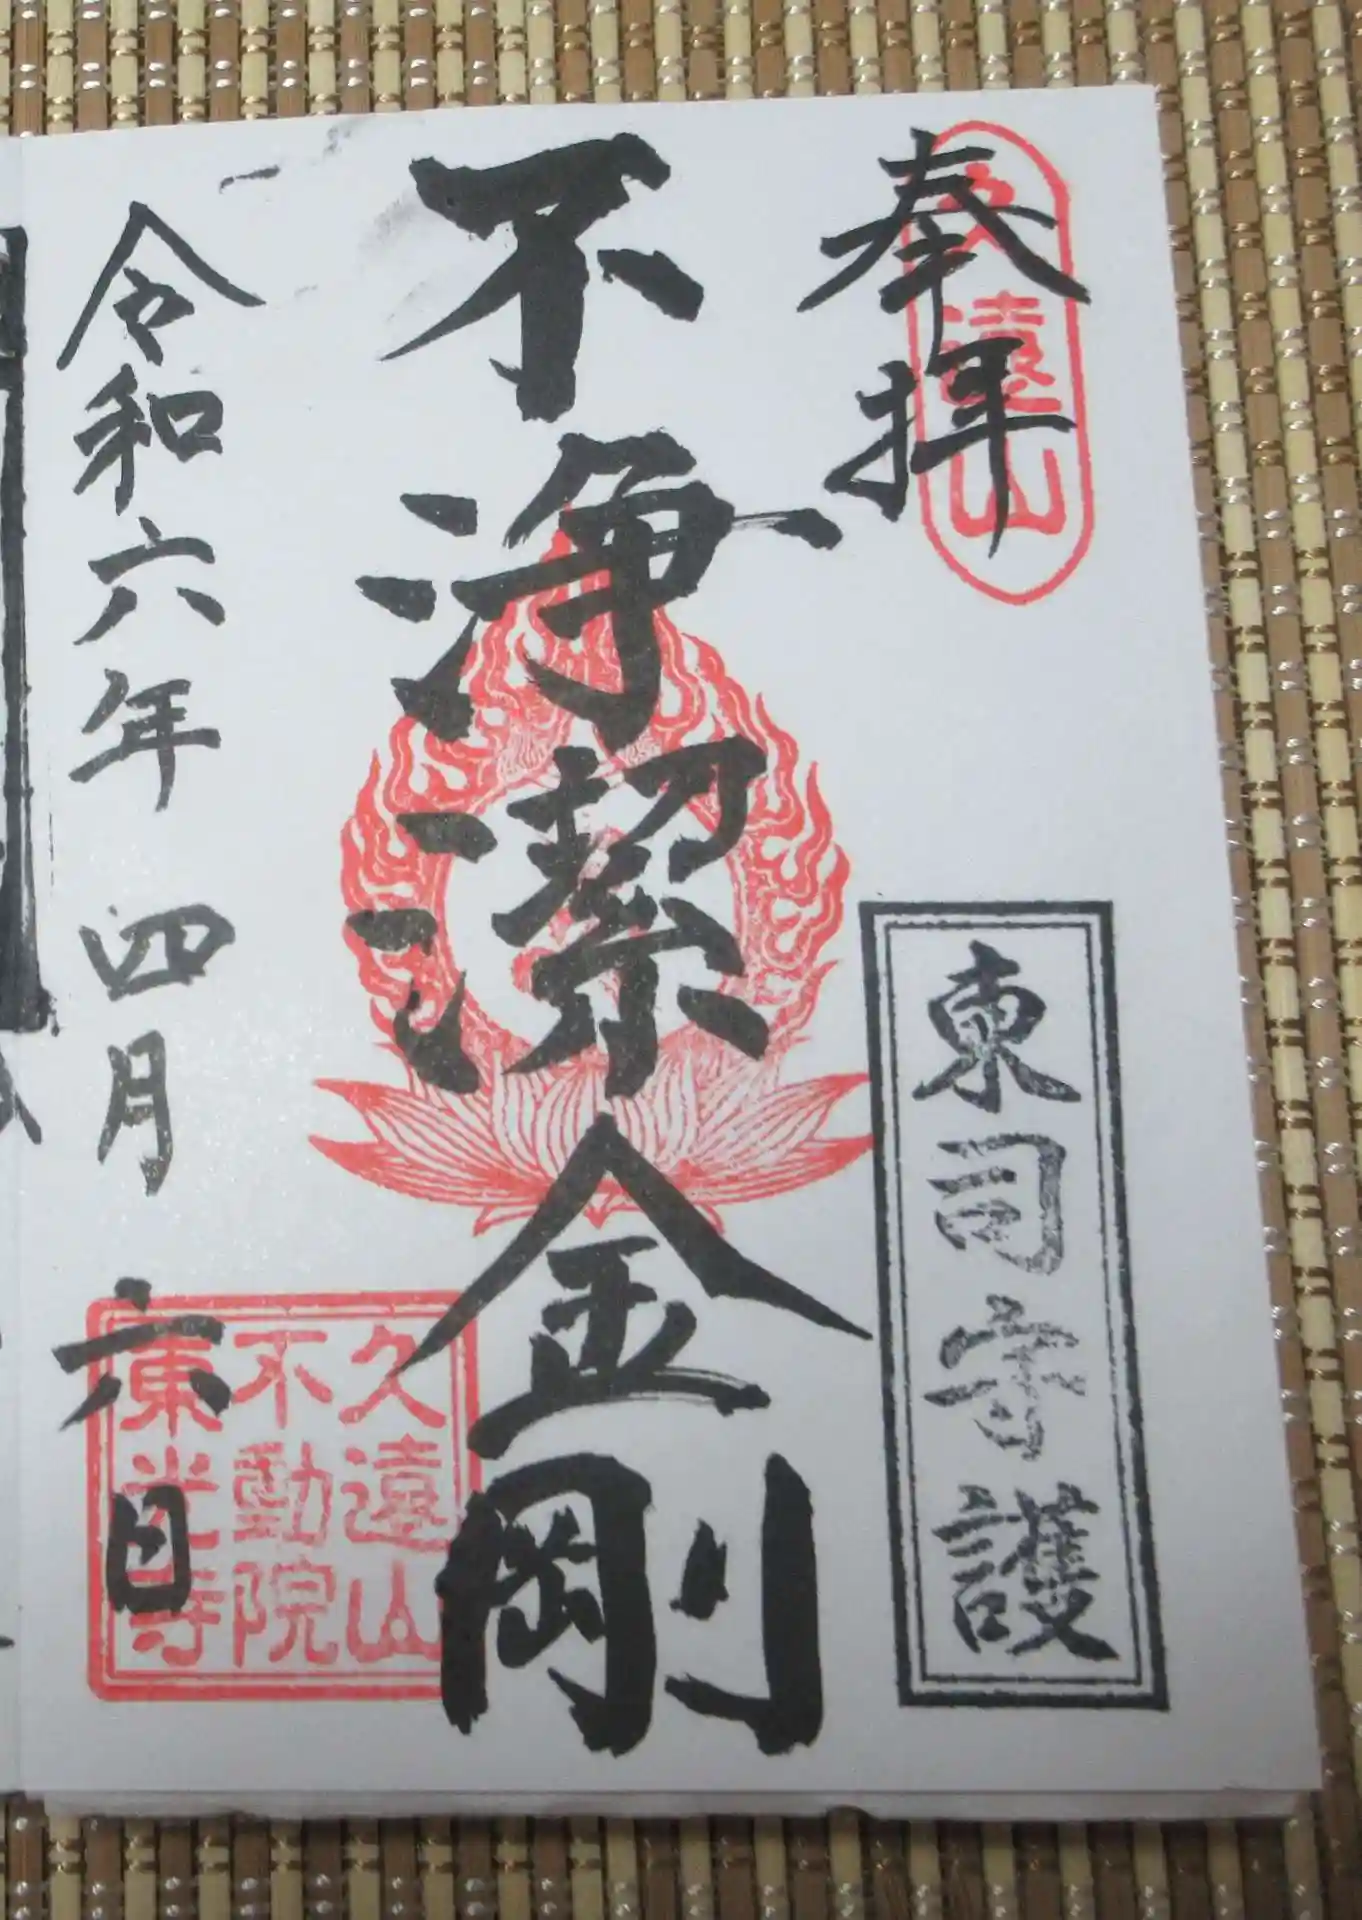 奉拝
久遠山
東司守護
不浄潔金剛
令和六年 四月 六日
久遠山
不動院
東光寺